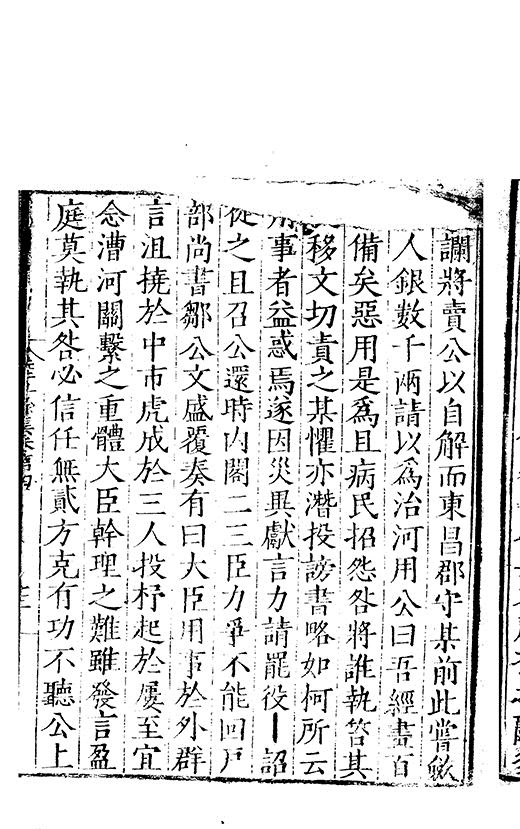 讕將賣公以自解而東昌郡守某前此嘗斂
人銀數千兩請以爲治河用公曰吾經畫百
備矣惡用是爲且病民招怨咎將誰執笞其
移文切責之某懼亦潛投謗書略如柯所云
用事者益惑焉遂因災異獻言力請罷役一詔
從之且召公還時内閣二三臣力爭不能回戸
部尚書鄒公文盛覆奏有曰大臣用事於外群
言沮撓於中市虎成於三人投杼起於屢至宜
念漕河關繫之重體大臣幹理之難雖發言盈
庭莫執其咎必信任無貳方克有功不聽公上
集卷第四